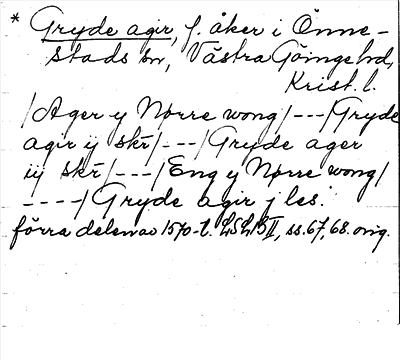 * Gryde agir, f. åker i Önne-
stads sn, Västra Göinge hd,
Krist. l.
/Ager y Nørre wong/---/Gryde
agir ij skr/---/Gryde ager
iij skr/---/Eng y Nørre wong/
----/Gryde agir j les.
förra delen av 1570-t. LSLB II, ss. 67, 68. orig.